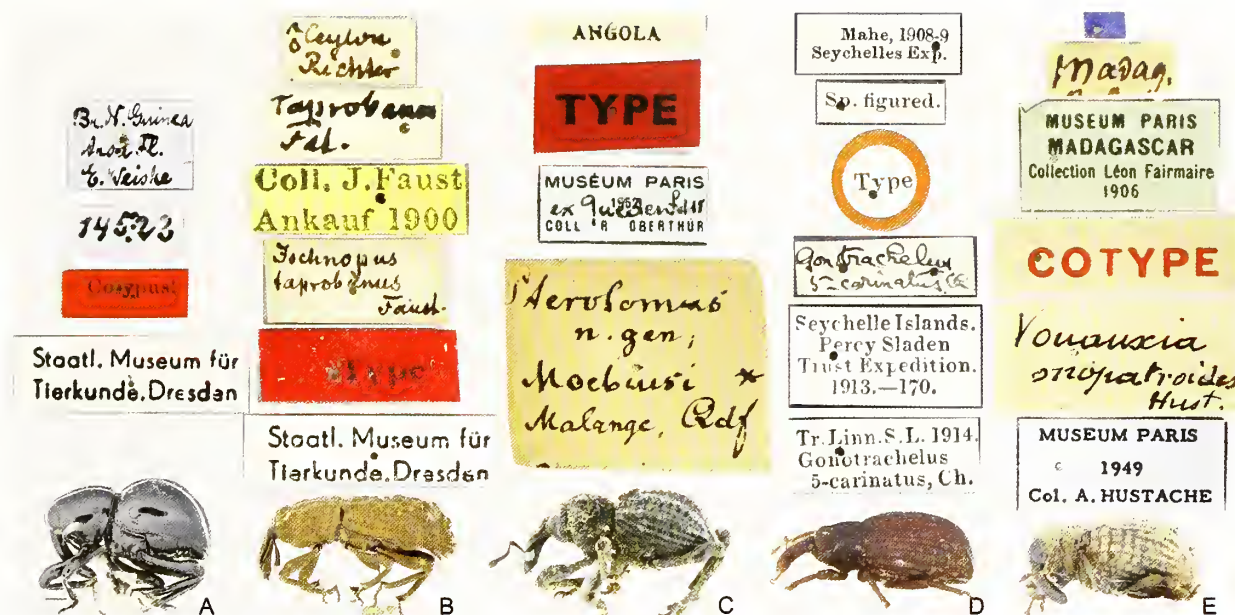 Br. N. Guinea
Aroa Fl.
E. Weiske
14523
Cotypus!
Staatl. Museum für
Tierkunde, Dresden
A
♂ Ceylon
Richter
Taprobanus
Fst.
Coll. J. Faust
Ankauf 1900
Ischnopus
taprobanus
Faust.
Type
Staatl. Museum für
Tierkunde, Dresden
B
ANGOLA
TYPE
MUSÉUM PARIS
1952
ex Quedenfeldt
COLL R OBERTHUR
n. gen,
Moebiusi *
Malange, Qdf
C
Mahe, 1908-9
Seychelles Exp.
Sp. figured.
Type
Gonotrachelus
5-carinatus, Ch
Seychelle Islands.
Percy Sladen
Trust Expedition.
1913.—170.
Tr. Linn. S. L. 1914.
Gonotrachelus
5-carinatus, Ch.
D
Madag.
MUSEUM PARIS
MADAGASCAR
Collection Léon Fairmaire
1906
COTYPE
Vouauxia
onopatroides
Hust.
MUSEUM PARIS
1949
Col. A. HUSTACHE
E